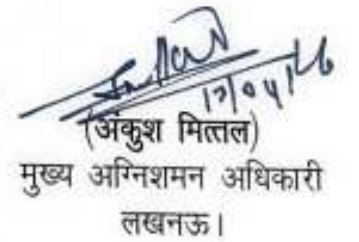 17/04/26
(अंकुश मित्तल)
मुख्य अग्निशमन अधिकारी
लखनऊ।